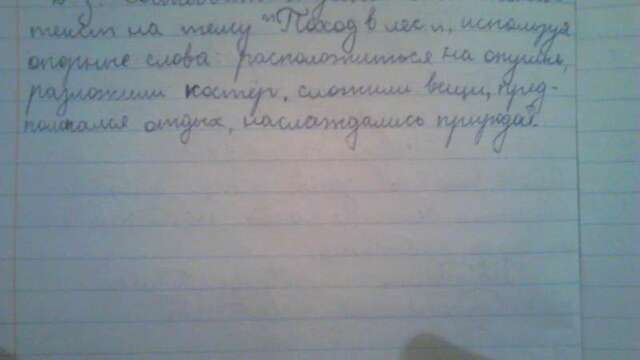 текст на тему "Поход в лес", используя
опорные слова: расположиться на опушке,
разложили костёр, сложили вещи, пред-
отдыха, наслаждались природой.